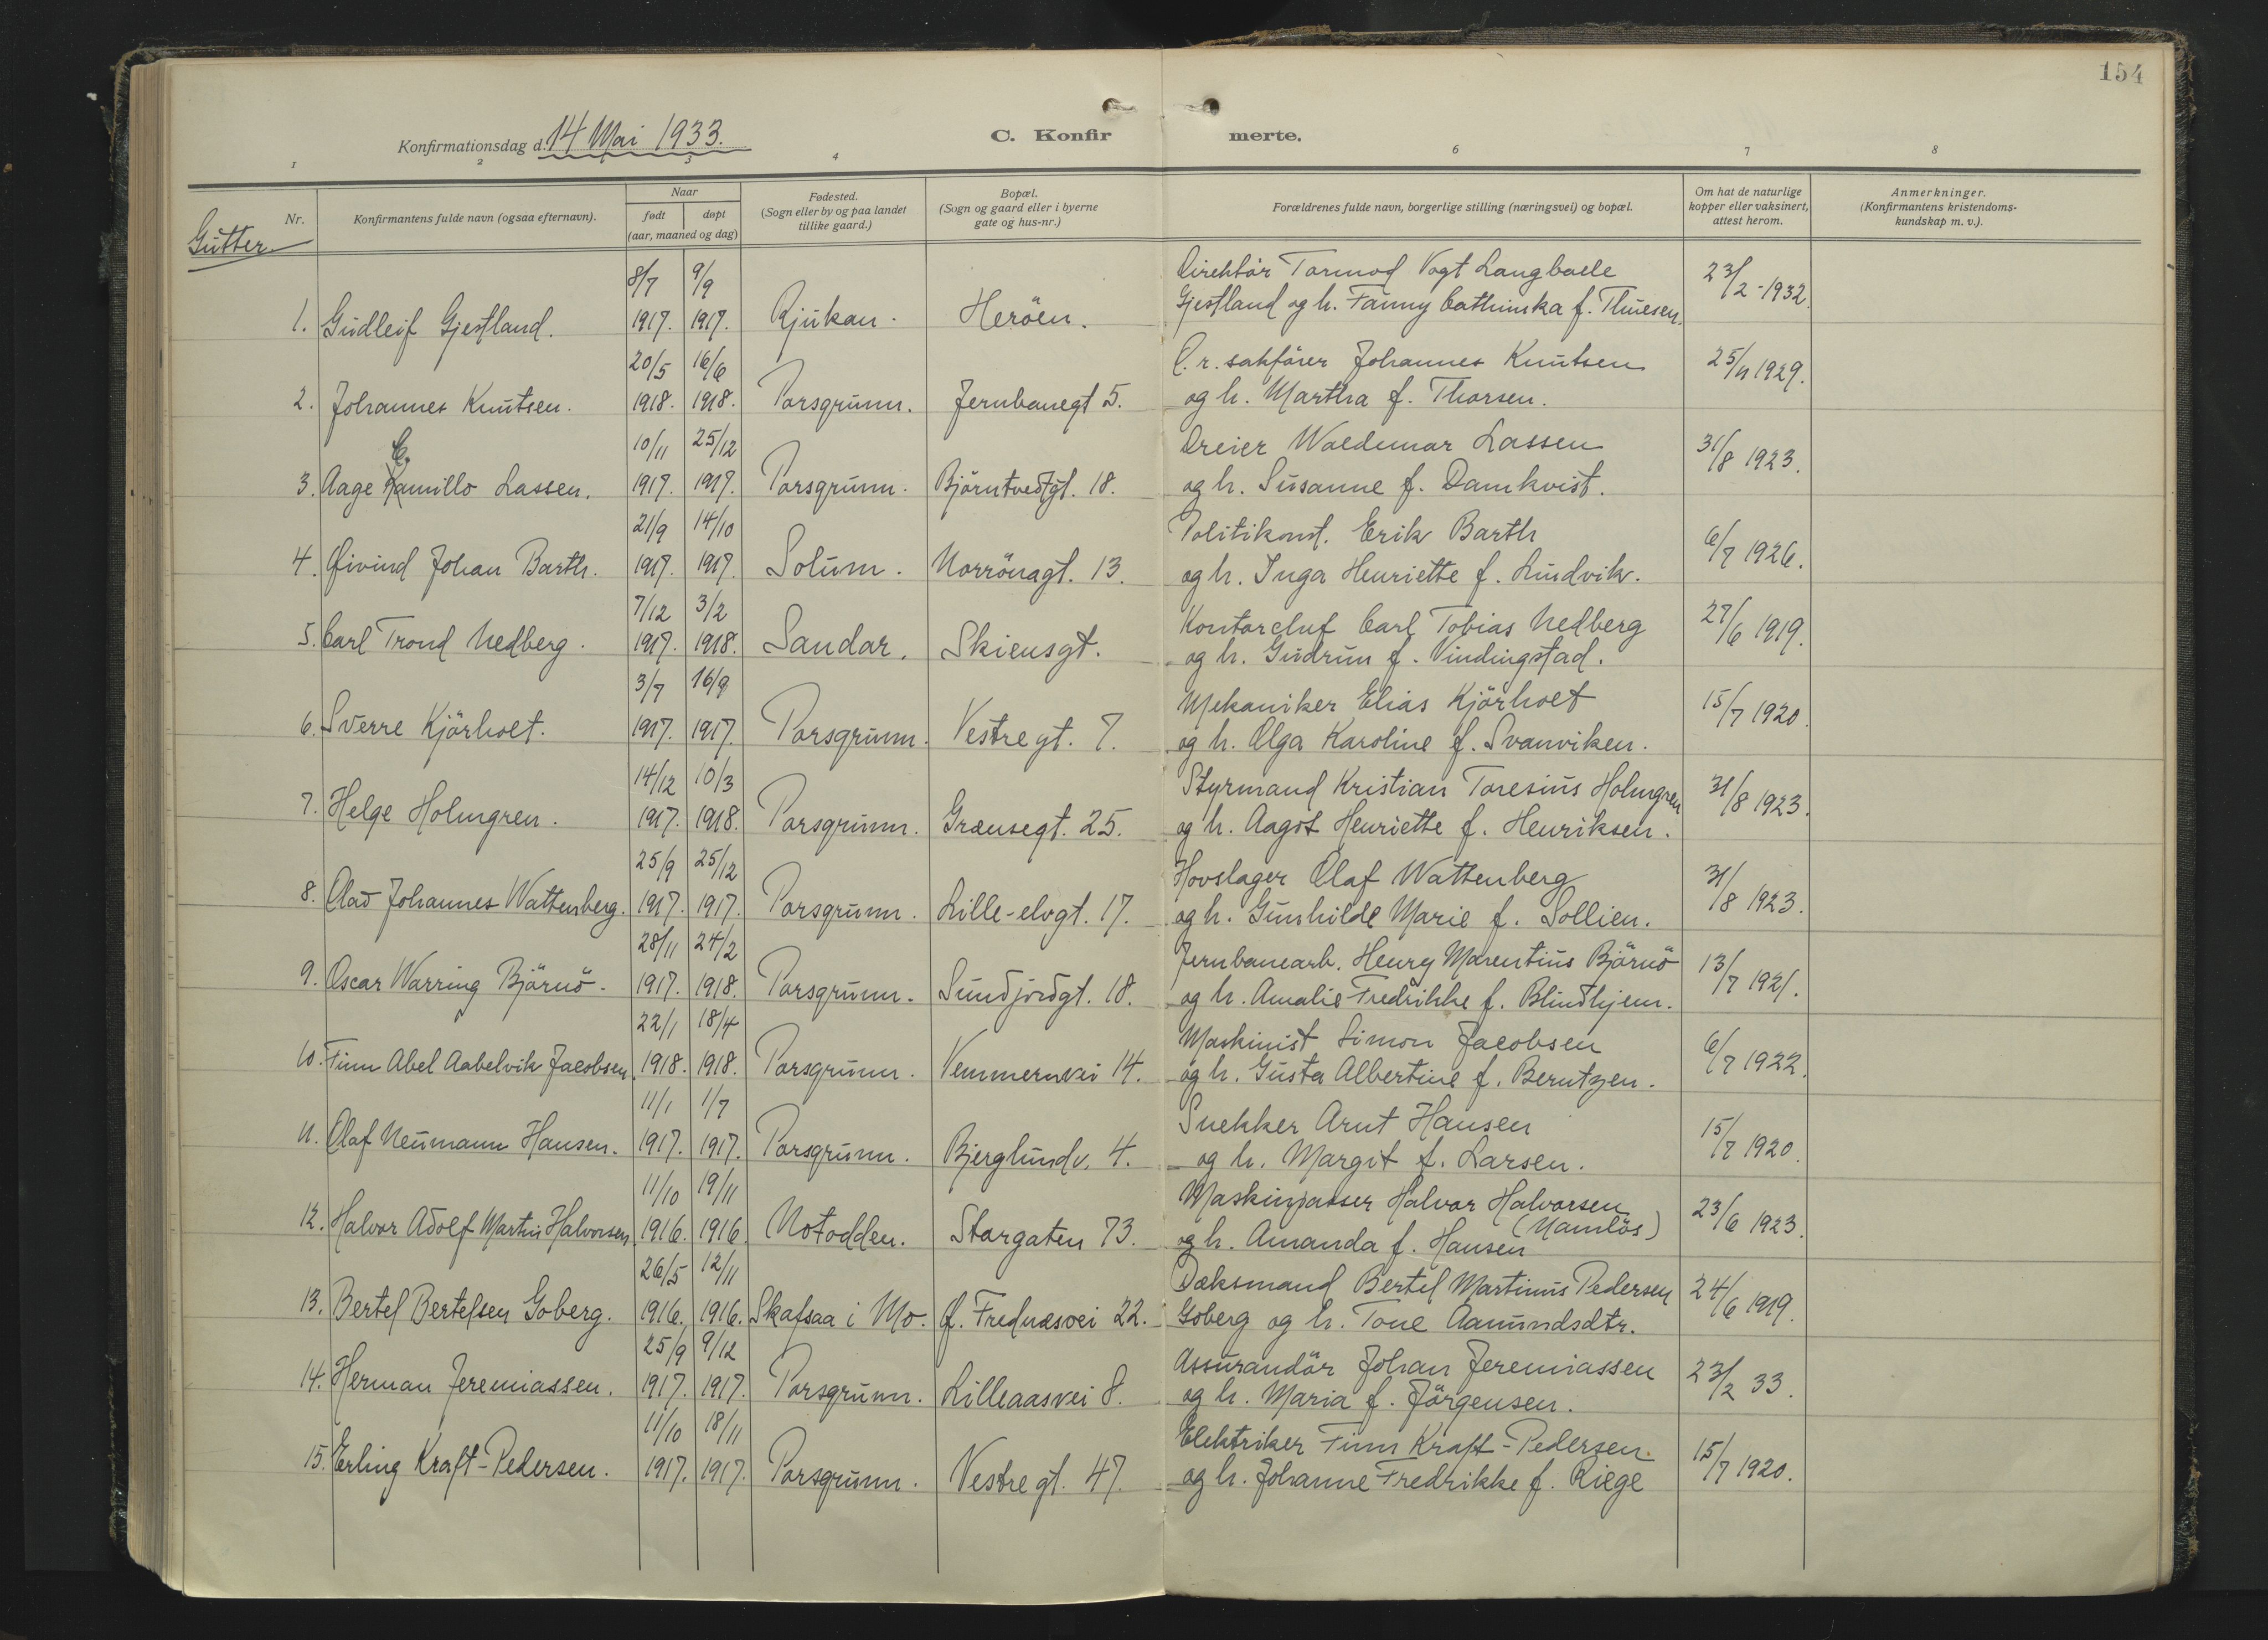 154
Konfirmationsdag d. 14 Mai 1933.
C. Konfirmerte.
1 2 3 4 6 7 8
Nr.
Konfirmantens fulde navn (ogsaa efternavn).
Naar
født døpt
(aar, maaned og dag)
Fødested.
(Sogn eller by og paa landet
tillike gaard.)
Bopæl.
(Sogn og gaard eller i byerne
gate og hus-nr.)
Forældrenes fulde navn, borgerlige stilling (næringsvei) og bopæl.
Om hat de naturlige
kopper eller vaksinert,
attest herom.
Anmerkninger.
(Konfirmantens kristendoms-
kundskap m. v.).
Gutter
8/7 9/9 Direktör Tormod Vogt Langballe 23/2-1932.
1. Gudleif Gjestland. 1917. 1917. Rjukan. Heröen. Gjestland og h. Fanny Cathinka f. Thuesen.
20/5 16/6 O.r. sakförer Johannes Knutsen 25/11 1929.
2. Johannes Knutsen. 1918. 1918. Porsgrunn. Jernbanegt 5. og h. Martha f. Thorsen.
C. 10/11 25/12 Dreier Waldemar Lassen 31/8 1923.
3. Aage Kamillo Lassen. 1917. 1917. Porsgrunn. Björntvedtgt. 18. og h. Susanne f. Damkvist.
21/9 14/10 Politikonst. Erik Barth 6/7 1926.
4. Øivind Johan Barth. 1917. 1917. Solum. Norrönagt. 13. og h. Inga Henriette f. Lundvik.
7/12 3/2 Kontorchef Carl Tobias Nedberg 27/6 1919.
5. Carl Trond Nedberg. 1917. 1918. Sandar. Skiensgt. og h. Gudrun f. Vindingstad.
3/7 16/9 Mekaniker Elias Kjörholt 15/7 1920.
6. Sverre Kjörholt. 1917. 1917. Porsgrunn. Vestregt. 7. og h. Olga Karoline f. Svanviken.
14/12 10/3 Styrmand Kristian Toresius Holmgren 31/8 1923.
7. Helge Holmgren. 1917. 1918. Porsgrunn. Grænsegt. 25. og h. Aagot Henriette f. Henriksen.
25/9 25/12 Hovslager Olaf Wattenberg 31/8 1923.
8. Olav Johannes Wattenberg. 1917. 1917. Porsgrunn. Lille-elvgt. 17. og h. Gunhilde Marie f. Sollien.
28/11 24/2 Jernbanearb. Henry Marentius Björnö 13/7 1921.
9. Oscar Warring Björnö. 1917. 1918. Porsgrunn. Sundjordgt. 18. og h. Amalie Fredrikke f. Blindhjem.
22/1 18/4 Maskinist Simon Jacobsen 6/7 1922.
10. Finn Abel Aabelvik Jacobsen. 1918. 1918. Porsgrunn. Vemmernvei 14. og h. Gusta Albertine f. Berntzen.
11/1 1/7 Snekker Arnt Hansen 15/7 1920.
11. Olaf Neumann Hansen. 1917. 1917. Porsgrunn. Bjerglundv. 4. og h. Margit f. Larsen.
11/10 19/11 Maskinpasser Halvor Halvorsen 23/6 1923.
(Namlös)
12. Halvor Adolf Martin Halvorsen. 1916. 1916. Notodden. Storgaten 73. og h. Amanda f. Hansen
26/5 12/11 Dæksmand Bertel Martinius Pedersen 24/6 1919.
13. Bertel Bertelsen Goberg. 1916. 1916. Skafsaa i Mo. f. Frednæsvei 22. Goberg og h. Tone Aamundsdtr.
25/9 9/12 Assurandör Johan Jeremiassen 23/2 33.
14. Herman Jeremiassen. 1917. 1917. Porsgrunn. Lilleaasvei 8. og h. Maria f. Jörgensen.
11/10 18/11 Elektriker Finn Kraft-Pedersen 15/7 1920.
15. Erling Kraft-Pedersen. 1917. 1917. Porsgrunn. Vestregt. 47. og h. Johanne Fredrikke f. Riege